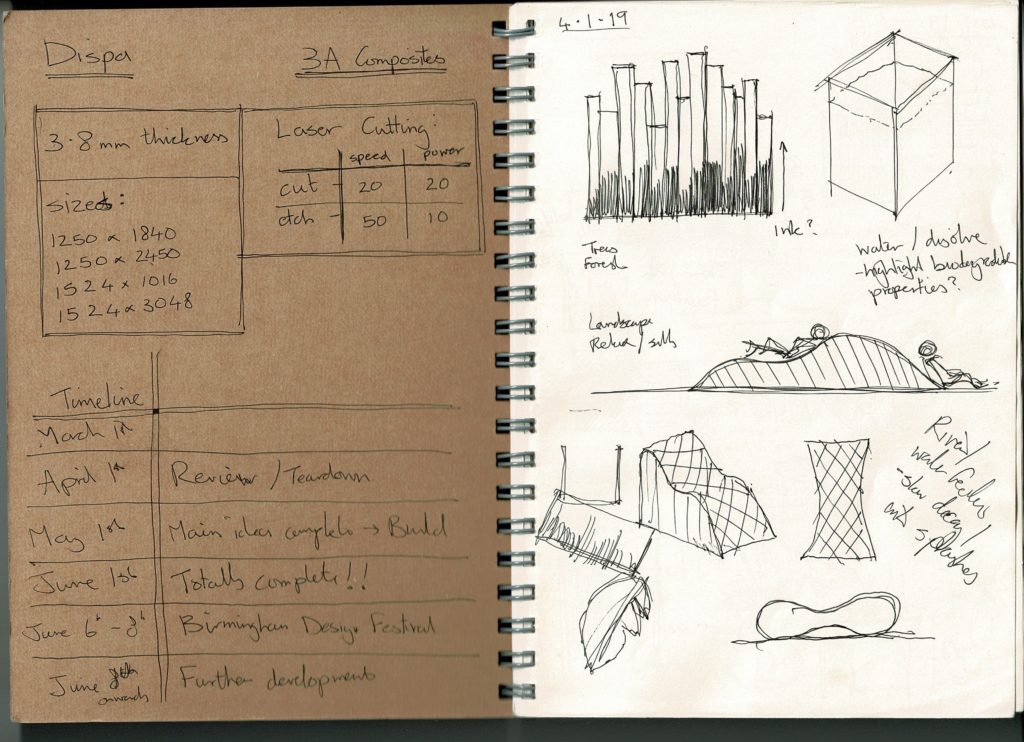 Dispa
3A Composites
3.8mm thickness
sizes:
1250 x 1840
1250 x 2450
1524 x 1016
1524 x 3048
Laser Cutting:
speed power
cut - 20 20
etch - 50 10
Timeline
March 1st
April 1st Review / Teardown
May 1st Main ideas complete → Build
June 1st Totally complete!!
June 6th - 8th Birmingham Design Festival
June 8th onwards Further development
4.1.19
Ink?
Trees
Forest
water / dissolve
- highlight biodegradable
properties?
Landscape
Relax /
River/
water
- slow decay/
ink splashes